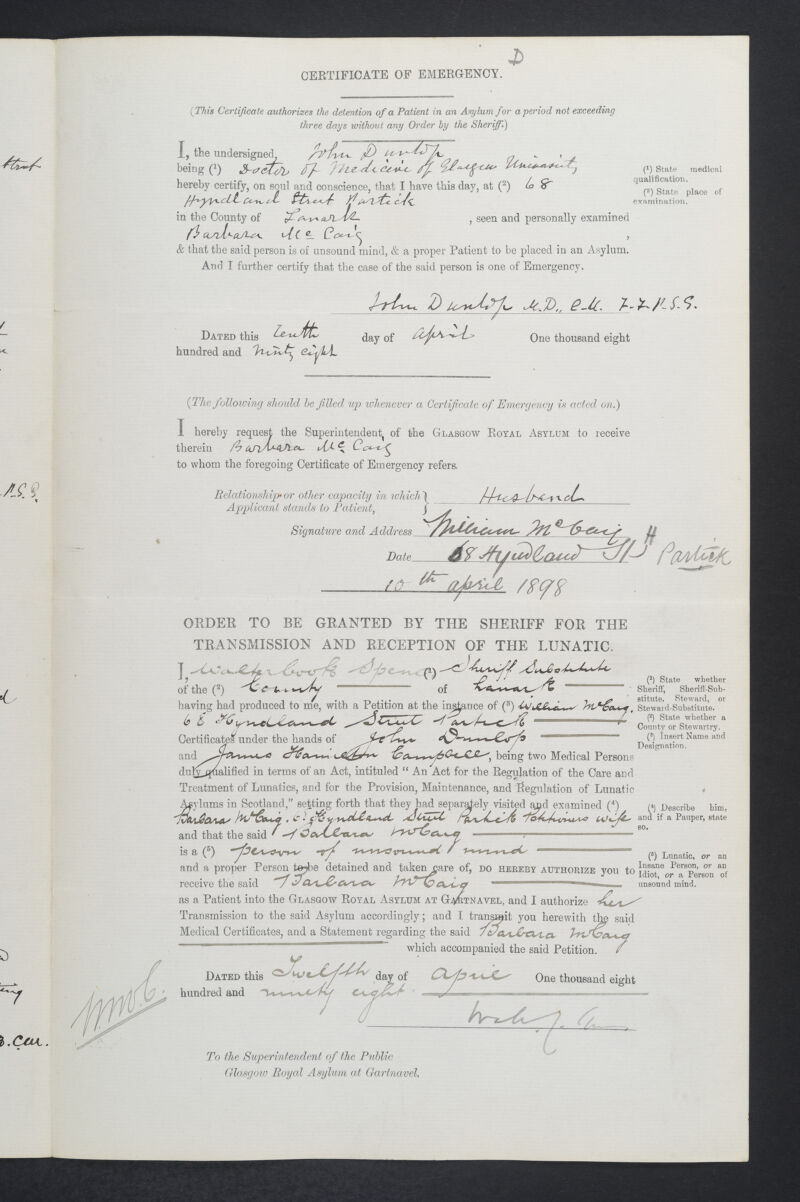 D
CERTIFICATE OF EMERGENCY.
(This Certificate authorizes the detention of a Patient in an Asylum for a period not exceeding
three days without any Order by the Sheriff.)
I, the undersigned, John Dunlop
being (1) Doctor of Medicine of Glasgow University
hereby certify, on soul and conscience, that I have this day, at (2) 68
Hyndland Street Partick
in the County of Lanark, seen and personally examined
Barbara McCaig,
& that the said person is of unsound mind, & a proper Patient to be placed in an Asylum.
And I further certify that the case of the said person is one of Emergency.
(1) State medical
qualification.
(2) State place of
examination.
John Dunlop M.D., C.M. F.F.P.S.G.
DATED this Tenth day of April One thousand eight
hundred and ninty eight
(The following should be filled up whenever a Certificate of Emergency is acted on.)
I hereby request the Superintendent, of the GLASGOW ROYAL ASYLUM to receive
therein Barbara McCaig
to whom the foregoing Certificate of Emergency refers.
Relationship or other capacity in which } Husband
Applicant stands to Patient, }
Signature and Address William McCaig
Date 68 Hyndland St Partick
10th april 1898
ORDER TO BE GRANTED BY THE SHERIFF FOR THE
TRANSMISSION AND RECEPTION OF THE LUNATIC.
I, Walter Cook Spens (1) Sheriff Substitute
of the (2) County of Lanark
having had produced to me, with a Petition at the instance of (3) William McCaig,
68 Hyndland Street Partick
Certificates under the hands of John Dunlop
and James Hamilton Campbell, being two Medical Persons
duly qualified in terms of an Act, intituled "An Act for the Regulation of the Care and
Treatment of Lunatics, and for the Provision, Maintenance, and Regulation of Lunatic
Asylums in Scotland," setting forth that they had separately visited and examined (4)
Barbara McCaig, 68 Hyndland Street Partick Petitioners wife
and that the said Barbara McCaig
is a (5) person of unsound mind
and a proper Person to be detained and taken care of, DO HEREBY AUTHORIZE you to
receive the said Barbara McCaig
as a Patient into the GLASGOW ROYAL ASYLUM AT GARTNAVEL, and I authorize her
Transmission to the said Asylum accordingly; and I transmit you herewith the said
Medical Certificates, and a Statement regarding the said Barbara McCaig
which accompanied the said Petition.
(1) State whether
Sheriff, Sheriff-Sub-
stitute, Steward, or
Steward-Substitute.
(2) State whether a
County or Stewartry.
(3) Insert Name and
Designation.
(4) Describe him,
and if a Pauper, state
so.
(5) Lunatic, or an
Insane Person, or an
Idiot, or a Person of
unsound mind.
DATED this Twelfth day of April One thousand eight
hundred and ninety eight
To the Superintendent of the Public
Glasgow Royal Asylum at Gartnavel.